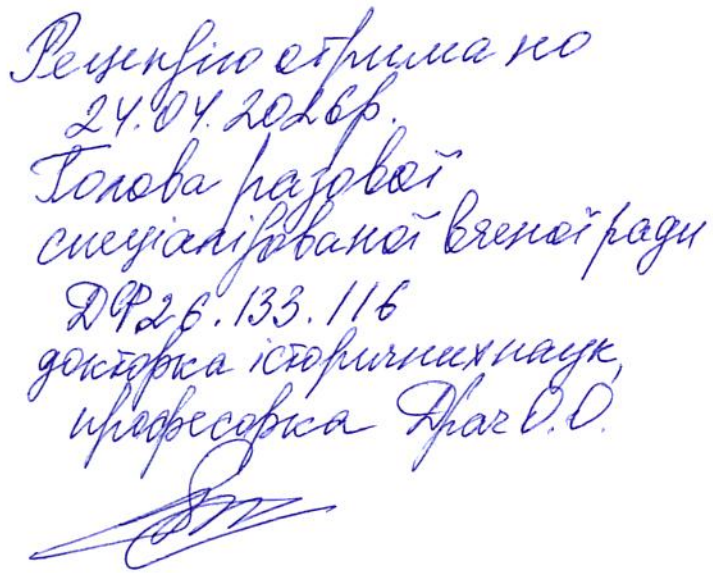 Рецензію отримано
24.04.2026р.
Голова разової
спеціалізованої вченої ради
ДФ26.133.116
докторка історичних наук,
професорка Драч О.О.